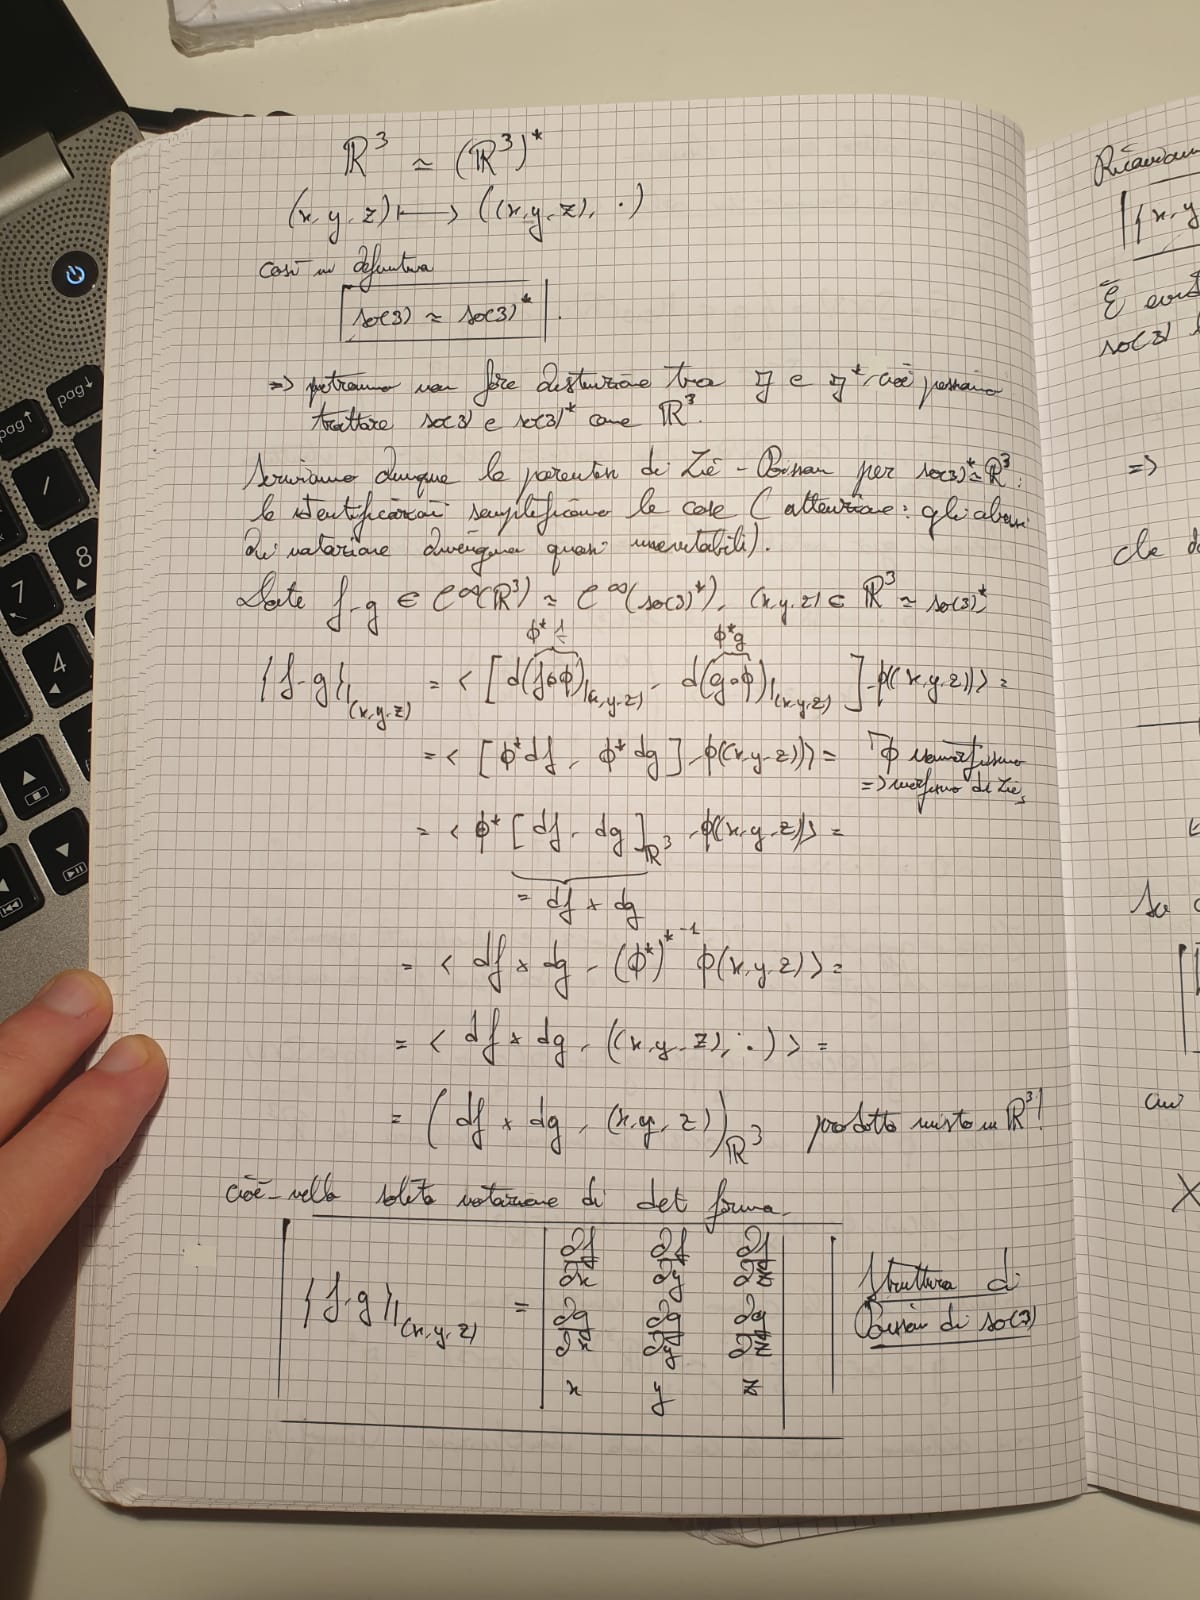 ℝ³ ≃ (ℝ³)*
(x,y,z) ⟼ ((x,y,z), ·)
così in definitiva
so(3) ≃ so(3)*.
=> potremo non fare distinzione tra 𝔤 e 𝔤*, cioè possiamo
trattare so(3) e so(3)* come ℝ³.
Scriviamo dunque le parentesi di Lie-Poisson per so(3)* ≃ ℝ³:
le identificazioni semplificano le cose (attenzione: gli abusi
di notazione divengono quasi inevitabili).
Date f, g ∈ C^∞(ℝ³) ≃ C^∞(so(3)*), (x,y,z) ∈ ℝ³ ≃ so(3)*
φ*f φ*g
{f,g}|(x,y,z) = < [ d(f∘φ)|(x,y,z), d(g∘φ)|(x,y,z) ], φ((x,y,z)) > =
= < [φ*df, φ*dg], φ((x,y,z)) > = φ
=> di Lie
= < φ*[df, dg]_ℝ³, φ((x,y,z)) > =
= df × dg
= < df × dg, (φ*)*⁻¹ φ(x,y,z) > =
= < df × dg, ((x,y,z), ·) > =
= (df × dg, (x,y,z))_ℝ³ prodotto misto in ℝ³!
cioè, nella solita notazione di det forma
{f,g}|(x,y,z) = | ∂f/∂x ∂f/∂y ∂f/∂z |
| ∂g/∂x ∂g/∂y ∂g/∂z |
| x y z |
Struttura di
Poisson di so(3)
|{x,y
so(3)
=>